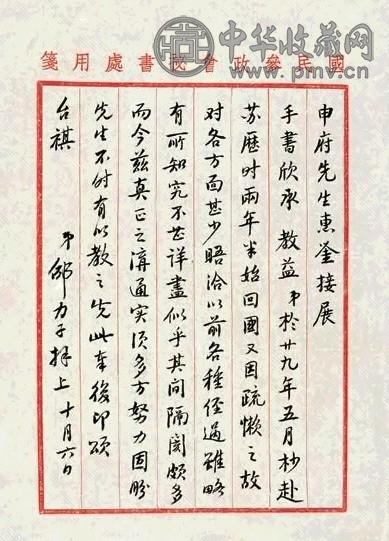 中华收藏网
www.pmv.cn
國民參政會秘書處用箋
申府先生惠鉴接展
手書欣承 教益 弟於廿九年五月杪赴
苏歷时兩年半始回國又因疏懒之故
对各方面甚少晤洽以前各種經過雖略
有所知究不甚详盡似乎其间隔阂頗多
而今兹真正之溝通实须多方努力固盼
先生不时有以教之也 此奉復即颂
台祺
弟邵力子拜上 十月六日